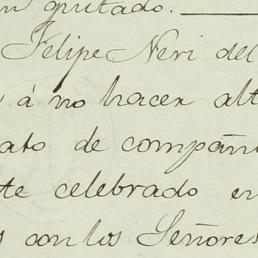 quitado.
Felipe Neri del
á no hacer alt
ato de compañi
te celebrado en
s con los Señores